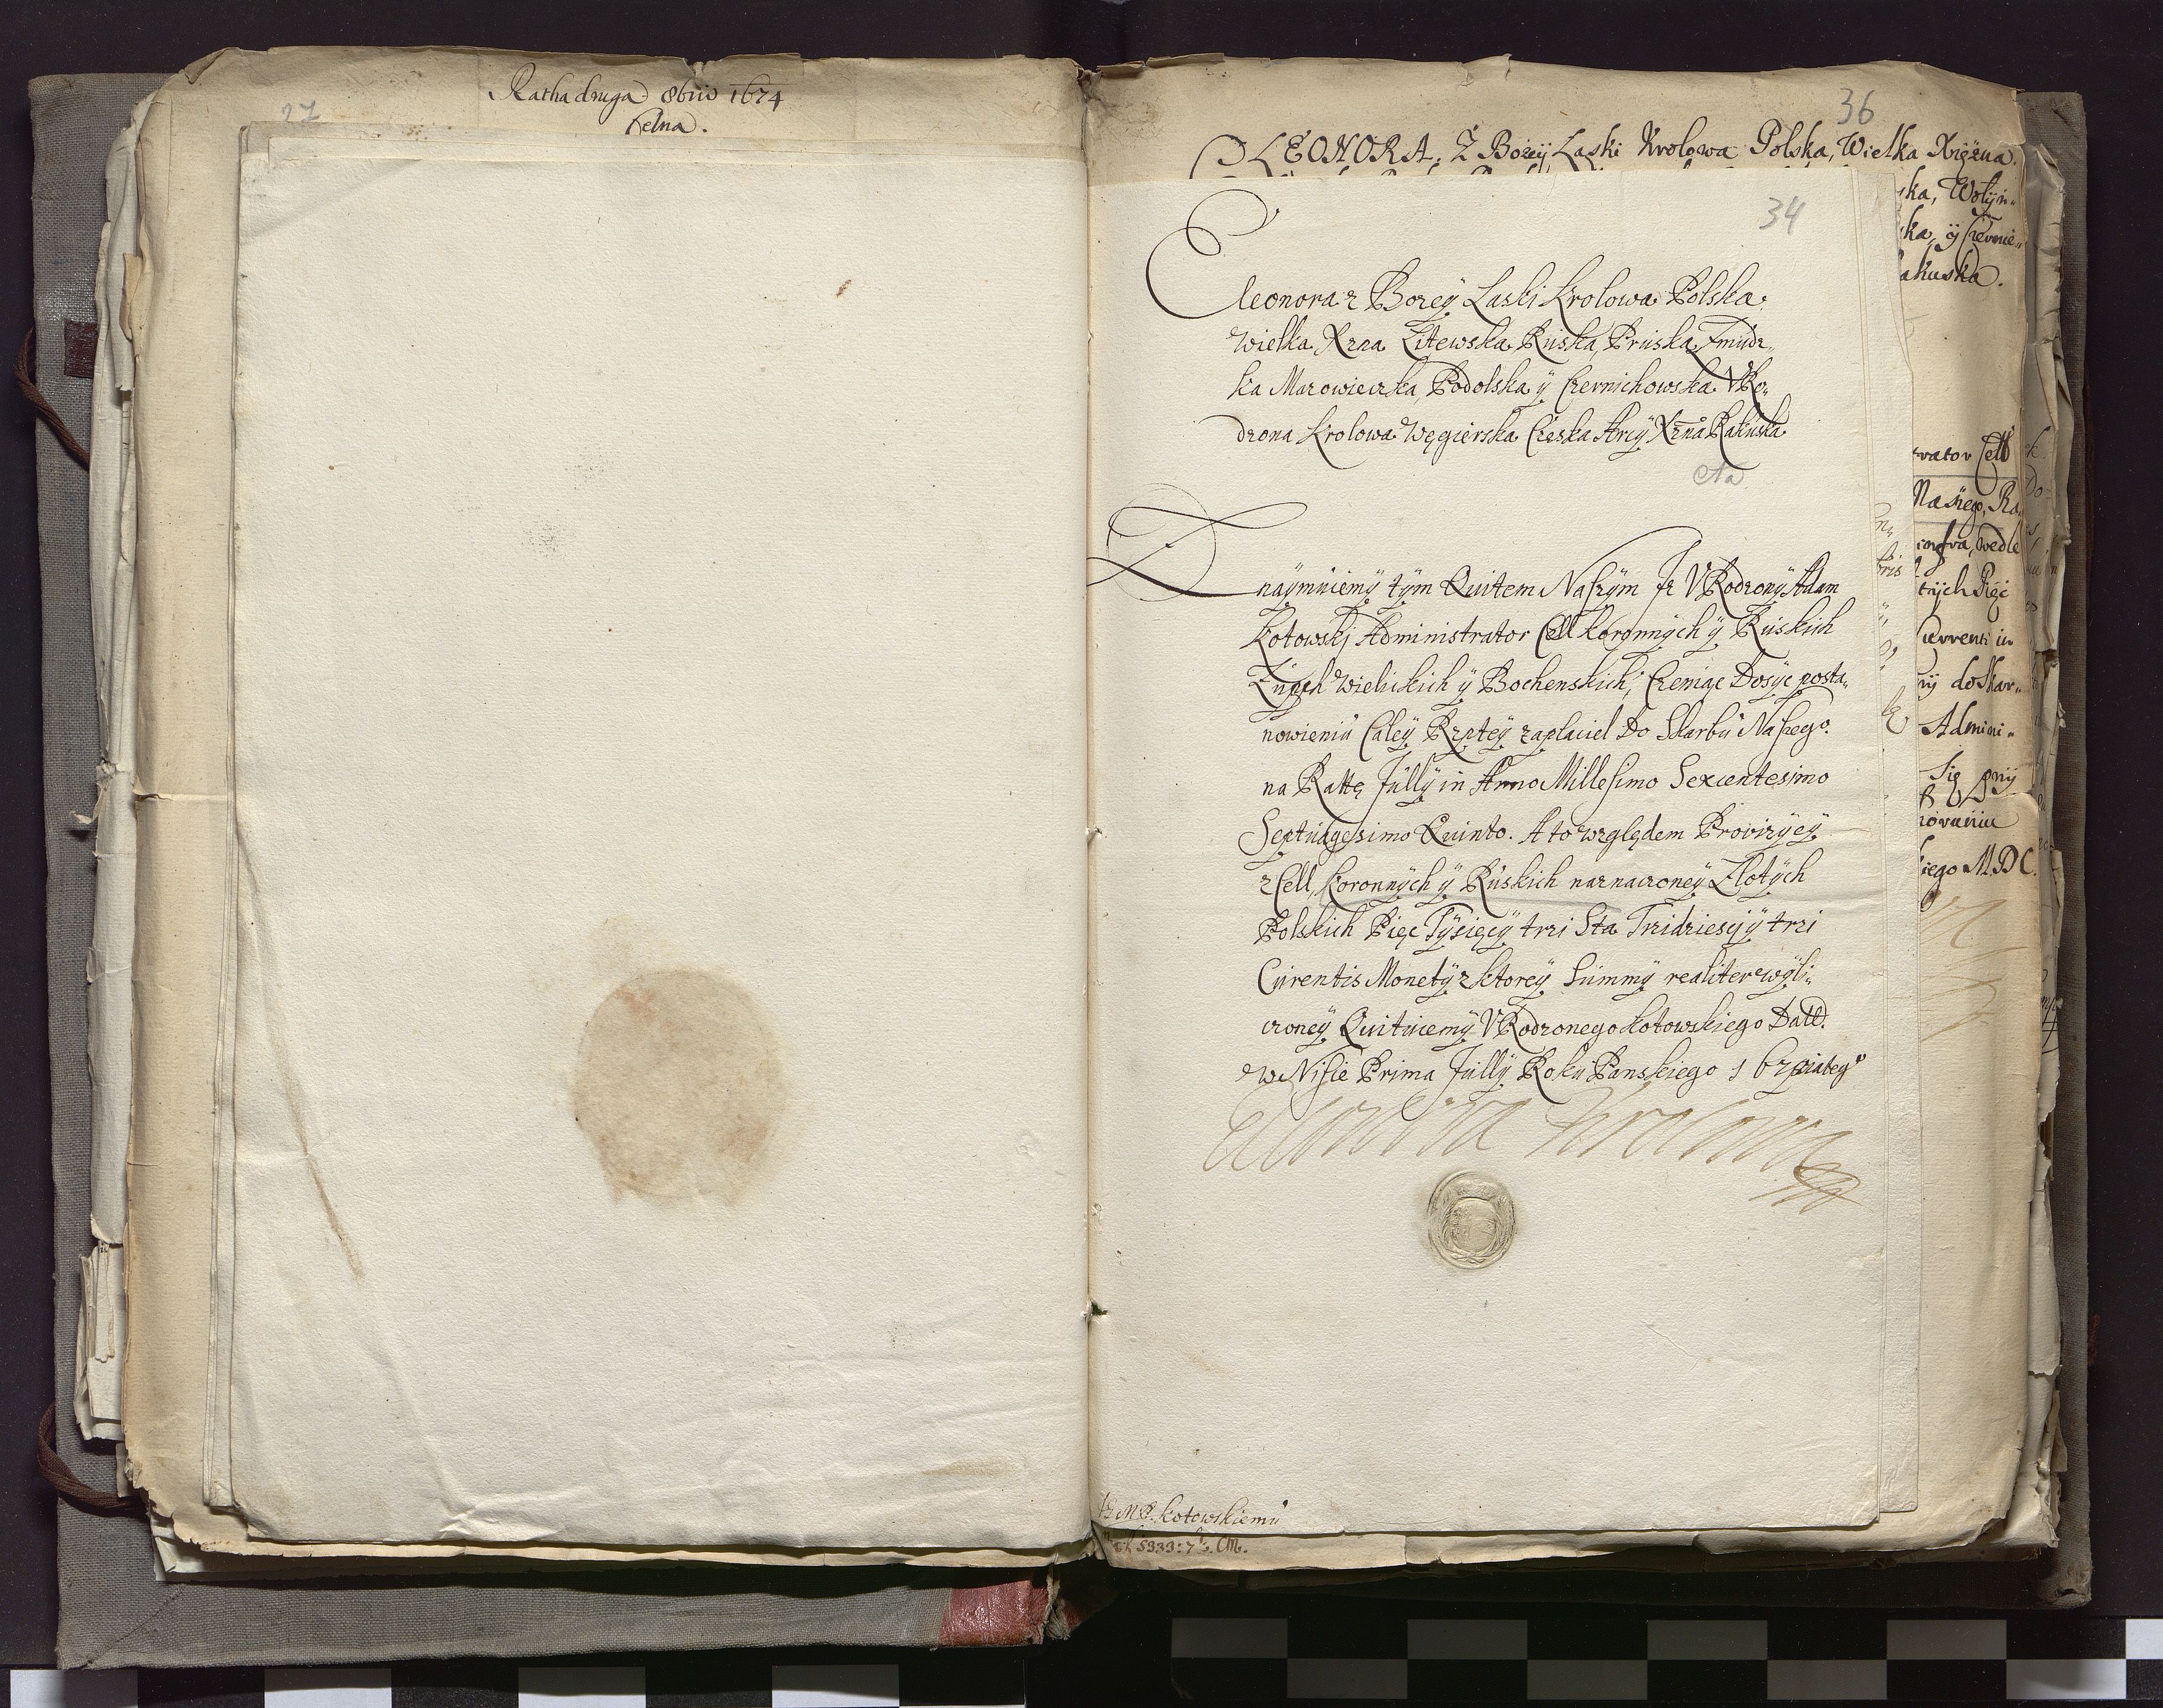 Ratha druga 8bris 1674
Celna.
27
36
ELEONORA, Z Bozÿ Laski Krolowa Polska, Wielka Xięzna
ska, Wolÿn„
ska, ÿ Czernie„
akuska.
34
Eleonora z Bozeÿ Laski Krolowa Polska
Wielka Xzna Litewska Ruska, Pruska, Zmudz„
ka Mazowiecka, Podolska ÿ Czernichowska VRo„
dzona Krolowa Węgierska Czeska Arcÿ Xzna Rakuska
Znaÿmuiemÿ tÿm Quitem Naszÿm Jz VRodzonÿ Adam
Kotowskj Administrator Cell koronnÿch ÿ Ruskich
Zupch Wielickich ÿ Bochenskich, Czeniąc Dosÿc posta„
nowieniu Caleÿ Rzpteÿ zaplaciel Do Skarbu Naszego
na Rattę Jullÿ in Anno Millesimo Sexcentesimo
Septuagesimo Quinto. A to względem Prowizÿeÿ
z Cell, Koronnÿch ÿ Ruskich naznaczoneÿ Zlotÿch
Polskich Pięc Tÿsięcÿ trzi Sta Trzidziesci ÿ trzi
Curentis Monetÿ z ktoreÿ Summÿ realiter wÿli„
czoneÿ Quituiemÿ VRodzonego Kotowskiego Datt.
w Nisie Prima Jullÿ Roku Panskiego
Eleonora Krolowa
M P. Kotowskiemu
5333: 7½. CM.
rator Cell
Naszego, Ra
wedle
tÿch Pięć
Currenti in
do Skar„
Admini„
Się
iego M.DC.